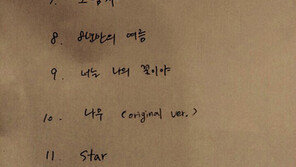 8. 8년만의 여름
9. 너는 나의 꽃이야
10. 나무 (original ver.)
11 Star